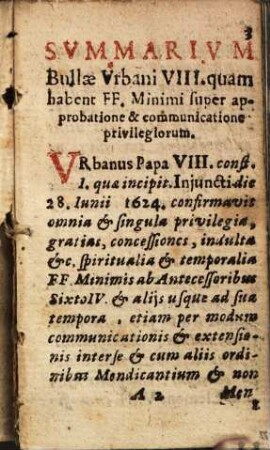 3
SVMMARIVM
Bullæ Vrbani VIII. quam
habent FF. Minimi super ap-
probatione & communicatione
privilegiorum.
VRbanus Papa VIII. const.
1. quæ incipit. Injuncti die
28. Iunii 1624. confirmavit
omnia & singula privilegia,
gratias, concessiones, indulta
&c. spiritualia & temporalia
FF. Minimis ab Antecessoribus
Sixto IV. & alijs usque ad sua
tempora, etiam per modum
communicationis & extensio-
nis inter se & cum aliis ordi-
nibus Mendicantium & non
A 2 Men